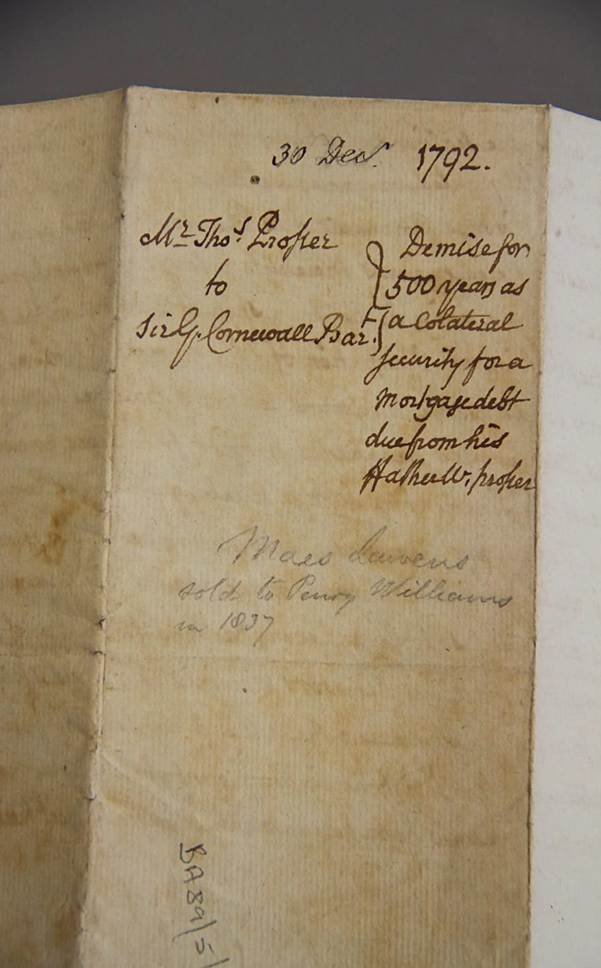 30 Decr. 1792.
Mr. Thos. Prosser
to
Sir G. Cornewall Bart.
Demise for
500 years as
a Colateral
security for a
Mortgage debt
due from his
Father W. prosser
Maes
sold to Penry Williams
in 1837
BA89/5/